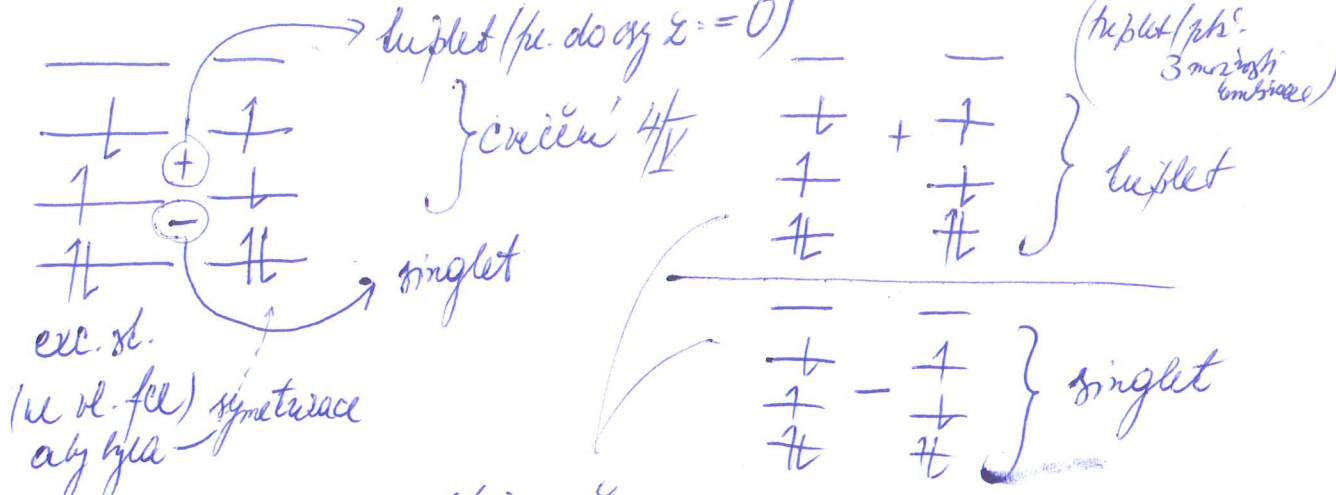 triplet (pr. do osy z := 0)
(triplet/
3 možnosti
+
+
cvičení 4/V
triplet
-
singlet
exc. st.
(ne vl. fce) symetrizace
aby byla
-
singlet